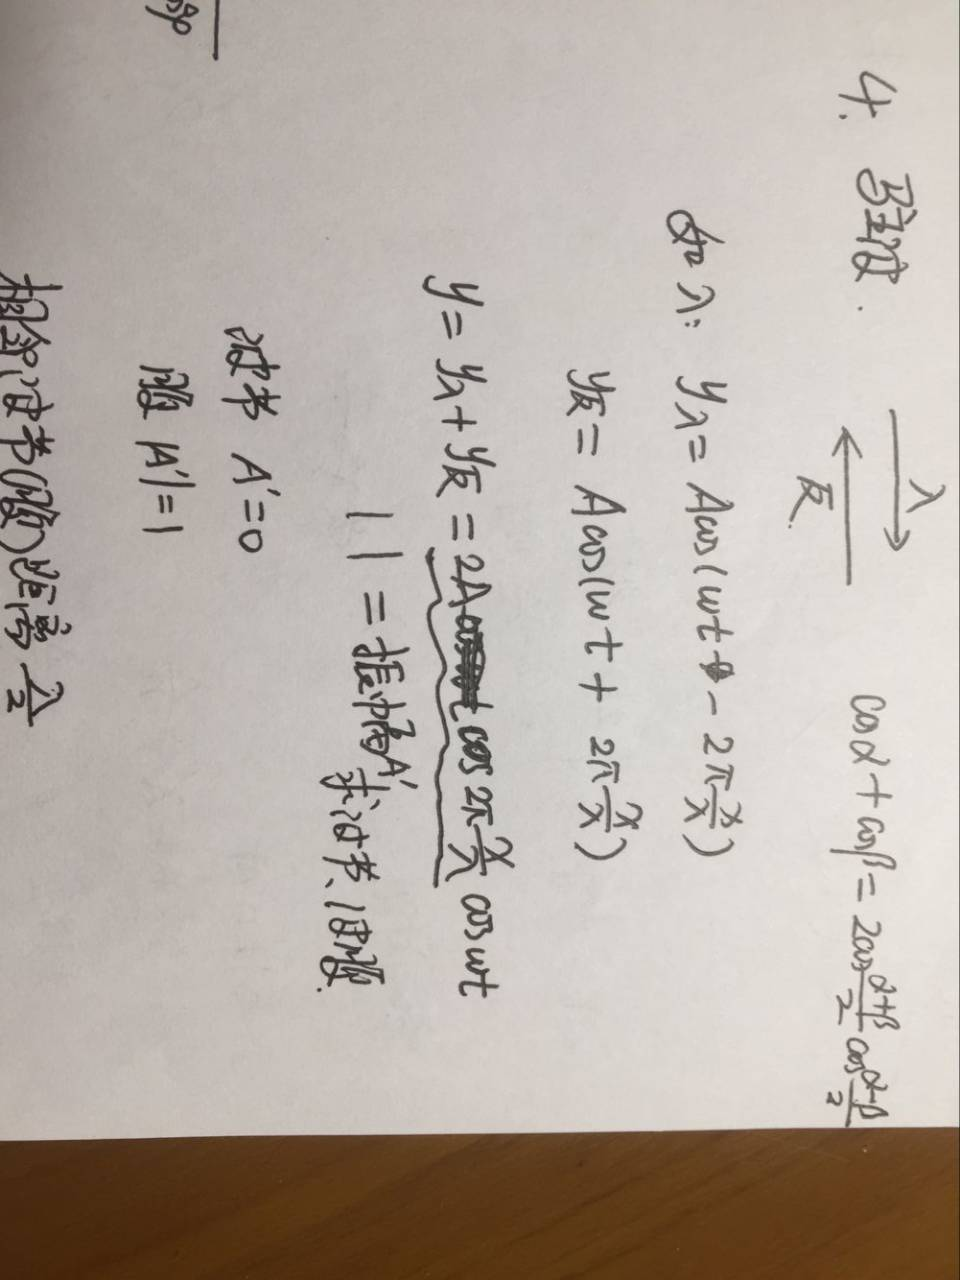 4. 驻波. 入 反. cosα + cosβ = 2cos\frac{α+β}{2} cos\frac{α-β}{2}
如 入: y入 = Acos(wt - 2π\frac{x}{λ})
y反 = Acos(wt + 2π\frac{x}{λ})
y = y入 + y反 = 2A cos 2π\frac{x}{λ} cos wt
| | = 振幅A' 求波节、波腹.
波节 A'=0
腹 |A'|=1
相邻波节(腹)距离 \frac{λ}{2}